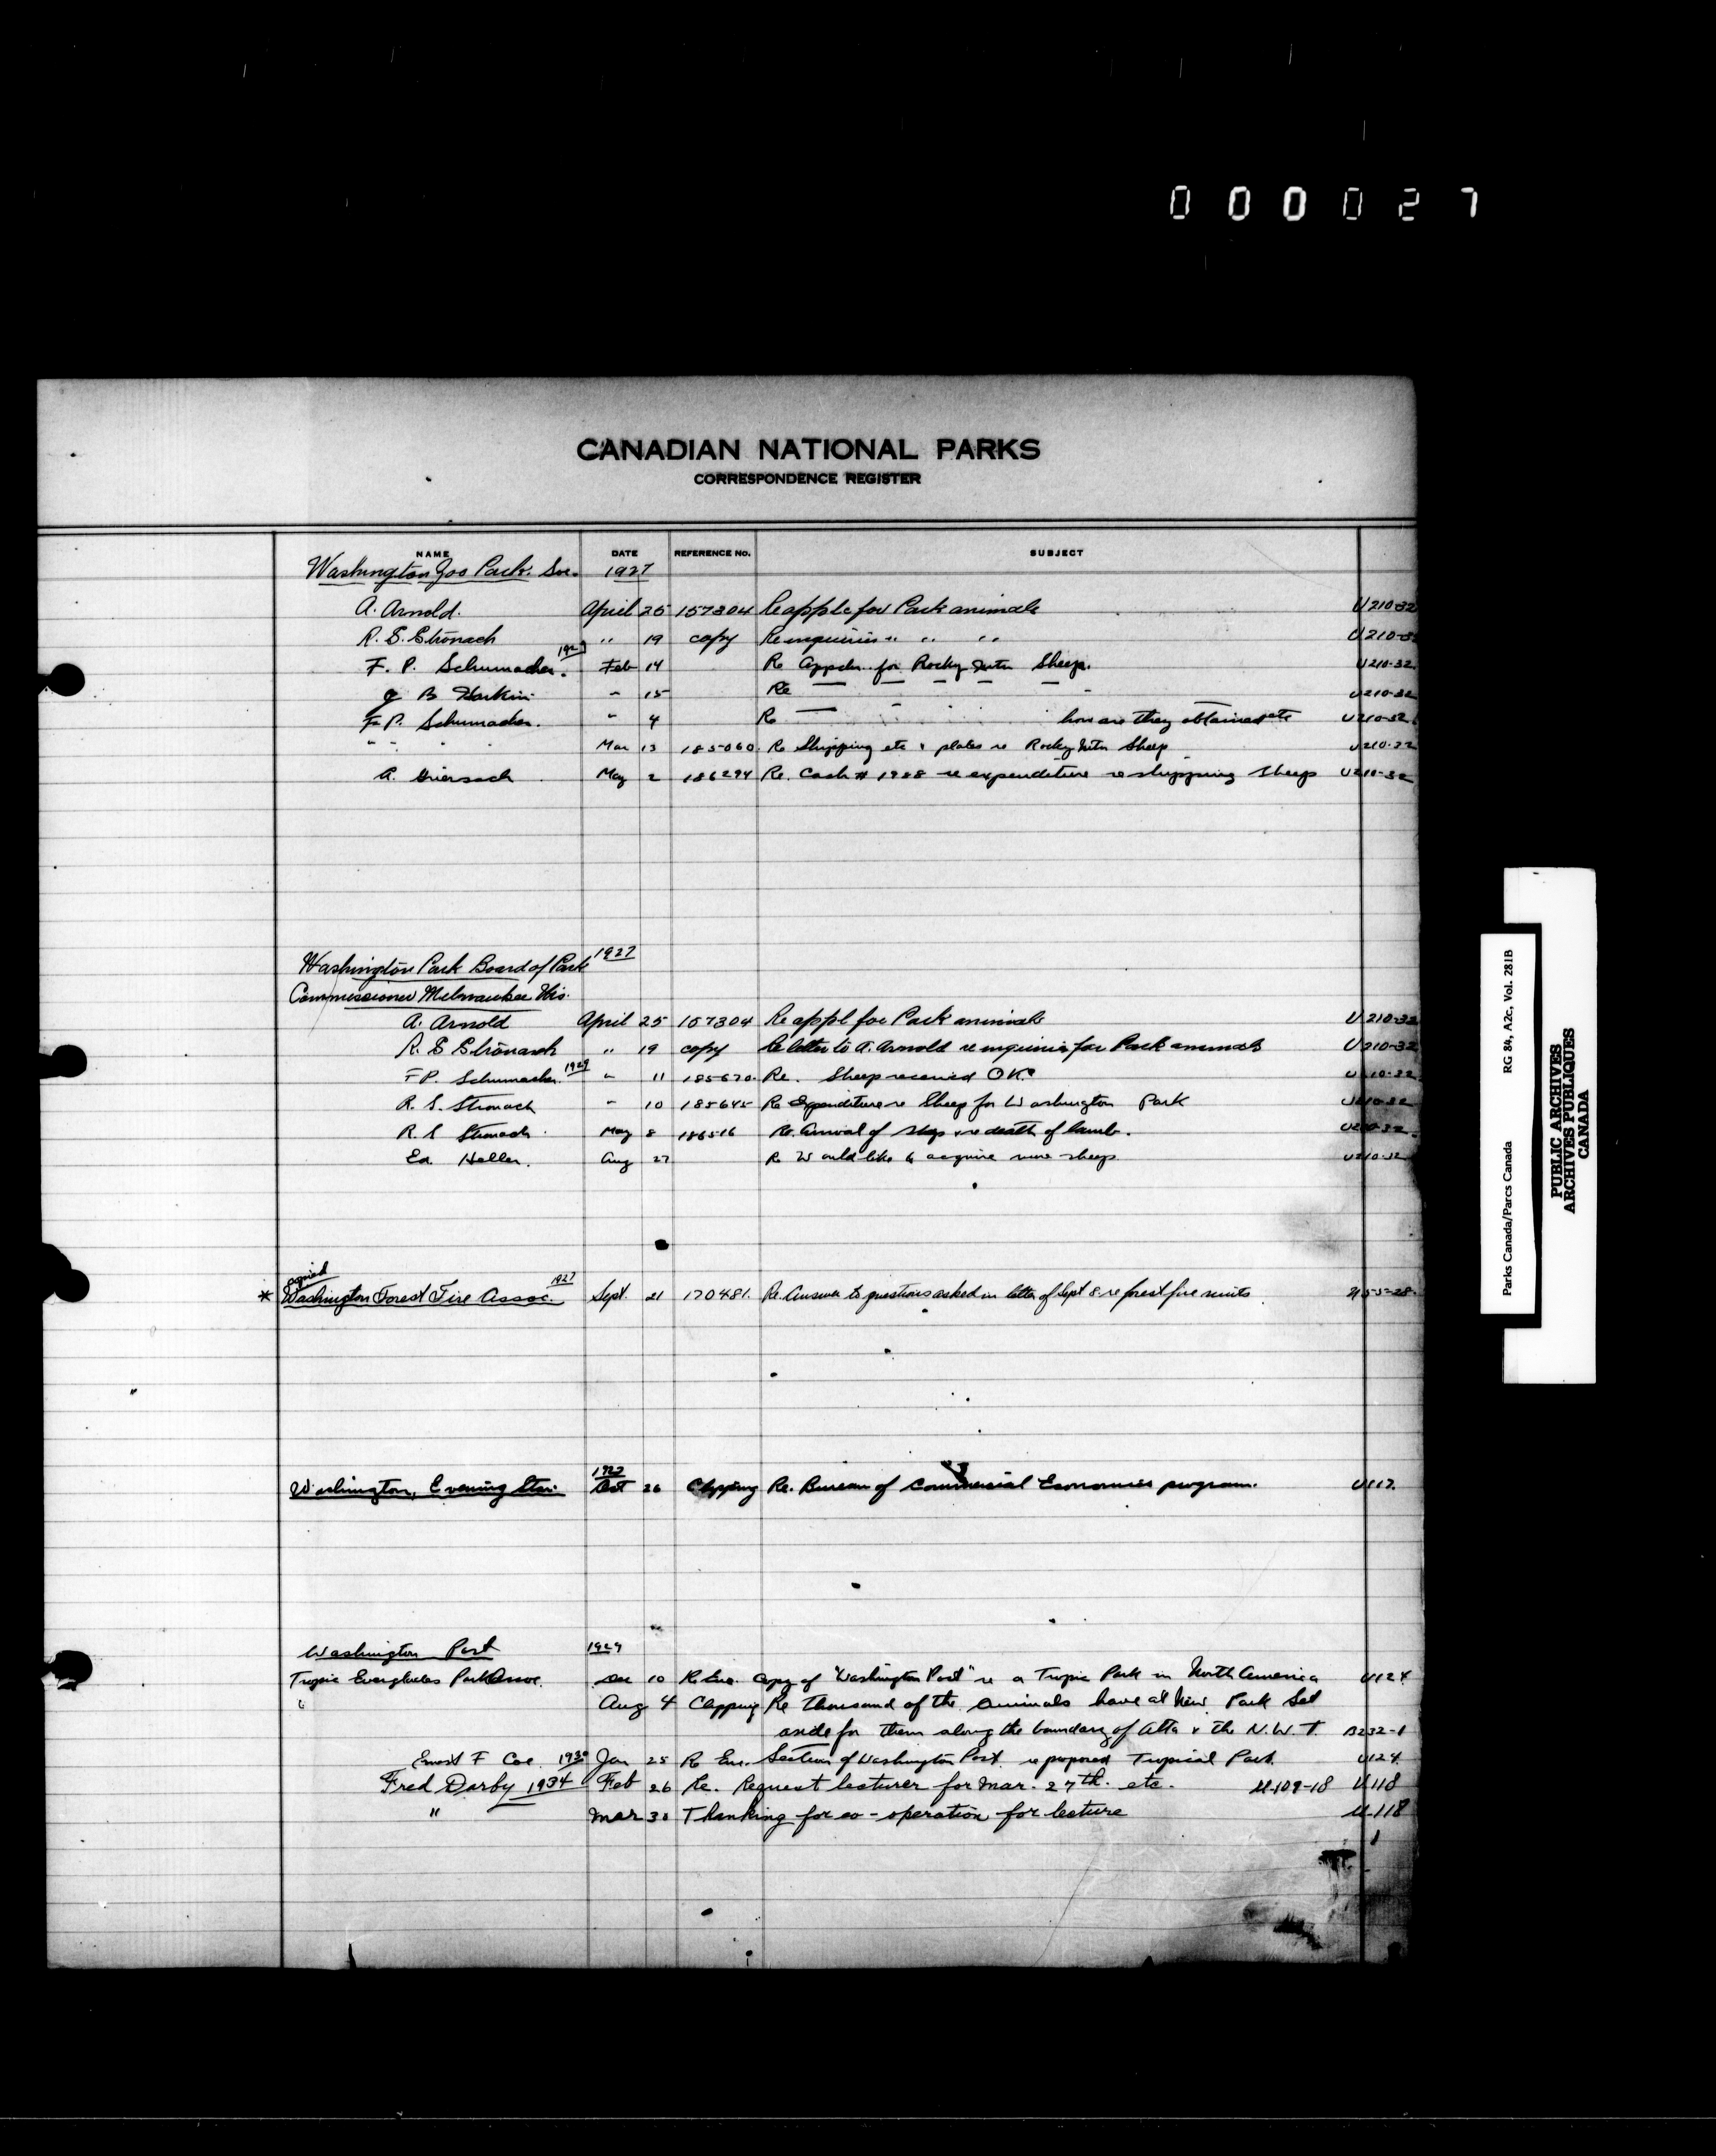 000027
CANADIAN NATIONAL PARKS
CORRESPONDENCE REGISTER
NAME DATE REFERENCE No. SUBJECT
Washington Zoo Park. Soc. 1927
A. Arnold. April 25 157304 Re appl. for Park animals U210-32
R. S. Stronach " 19 copy Re inquiries " " " U210-32
F. P. Schumacher. 1929 Feb 14 Re Appln. for Rocky Mtn Sheep. U210-32
J B Harkin " 15 Re — — — — — U210-32
F P. Schumacher. " 4 Re — how are they obtained etc U210-32
" " Mar 13 185060. Re Shipping etc & plates re Rocky Mtn Sheep U210-32
A. May 2 186294 Re. Cash # 1988 re expenditure re shipping sheep U210-32
Washington Park Board of Park 1927
Commissioner Milwaukee Wis.
A. Arnold April 25 157304 Re appl for Park animals U210-32
R. S Stronach " 19 copy Re letter to A. Arnold re inquiries for Park animals U210-32
F P. Schumacher. 1929 " 11 185670. Re. Sheep received OK. U210-32
R. S. Stronach " 10 185645 Re Expenditure re Sheep for Washington Park U210-32
R. S Stronach May 8 186516 Re. Arrival of sheep & re death of lamb. U210-32
Ed. Heller. Aug 27 Re Would like to acquire more sheep U210-32
* Washington Forest Fire Assoc. 1927 Sept. 21 170481. Re. Answer to questions asked in letter of Sept 8 re forest fire
Washington, Evening Star. 1927 Oct 26 Clipping Re. Bureau of Commercial Economics program. U117.
Washington Post 1929
Tropic Everglades Park Assoc. Dec 10 Re Enc. Copy of "Washington Post" re a Tropic Park in North America U124
" Aug 4 Clipping Re thousand of the animals have at New Park Set
aside for them along the boundary of Alta & the N.W.T. B232-1
Ernest F Coe 1930 Jan 25 Re Enc. Section of Washington Post re proposed Tropical Park. U124
Fred Darby 1934 Feb 26 Re. Request lecturer for Mar. 27th. etc. U-109-18 U118
" Mar 30 Thanking for co-operation for lecture U-118
Parks Canada/Parcs Canada RG 84, A2c, Vol. 281B
PUBLIC ARCHIVES
ARCHIVES PUBLIQUES
CANADA